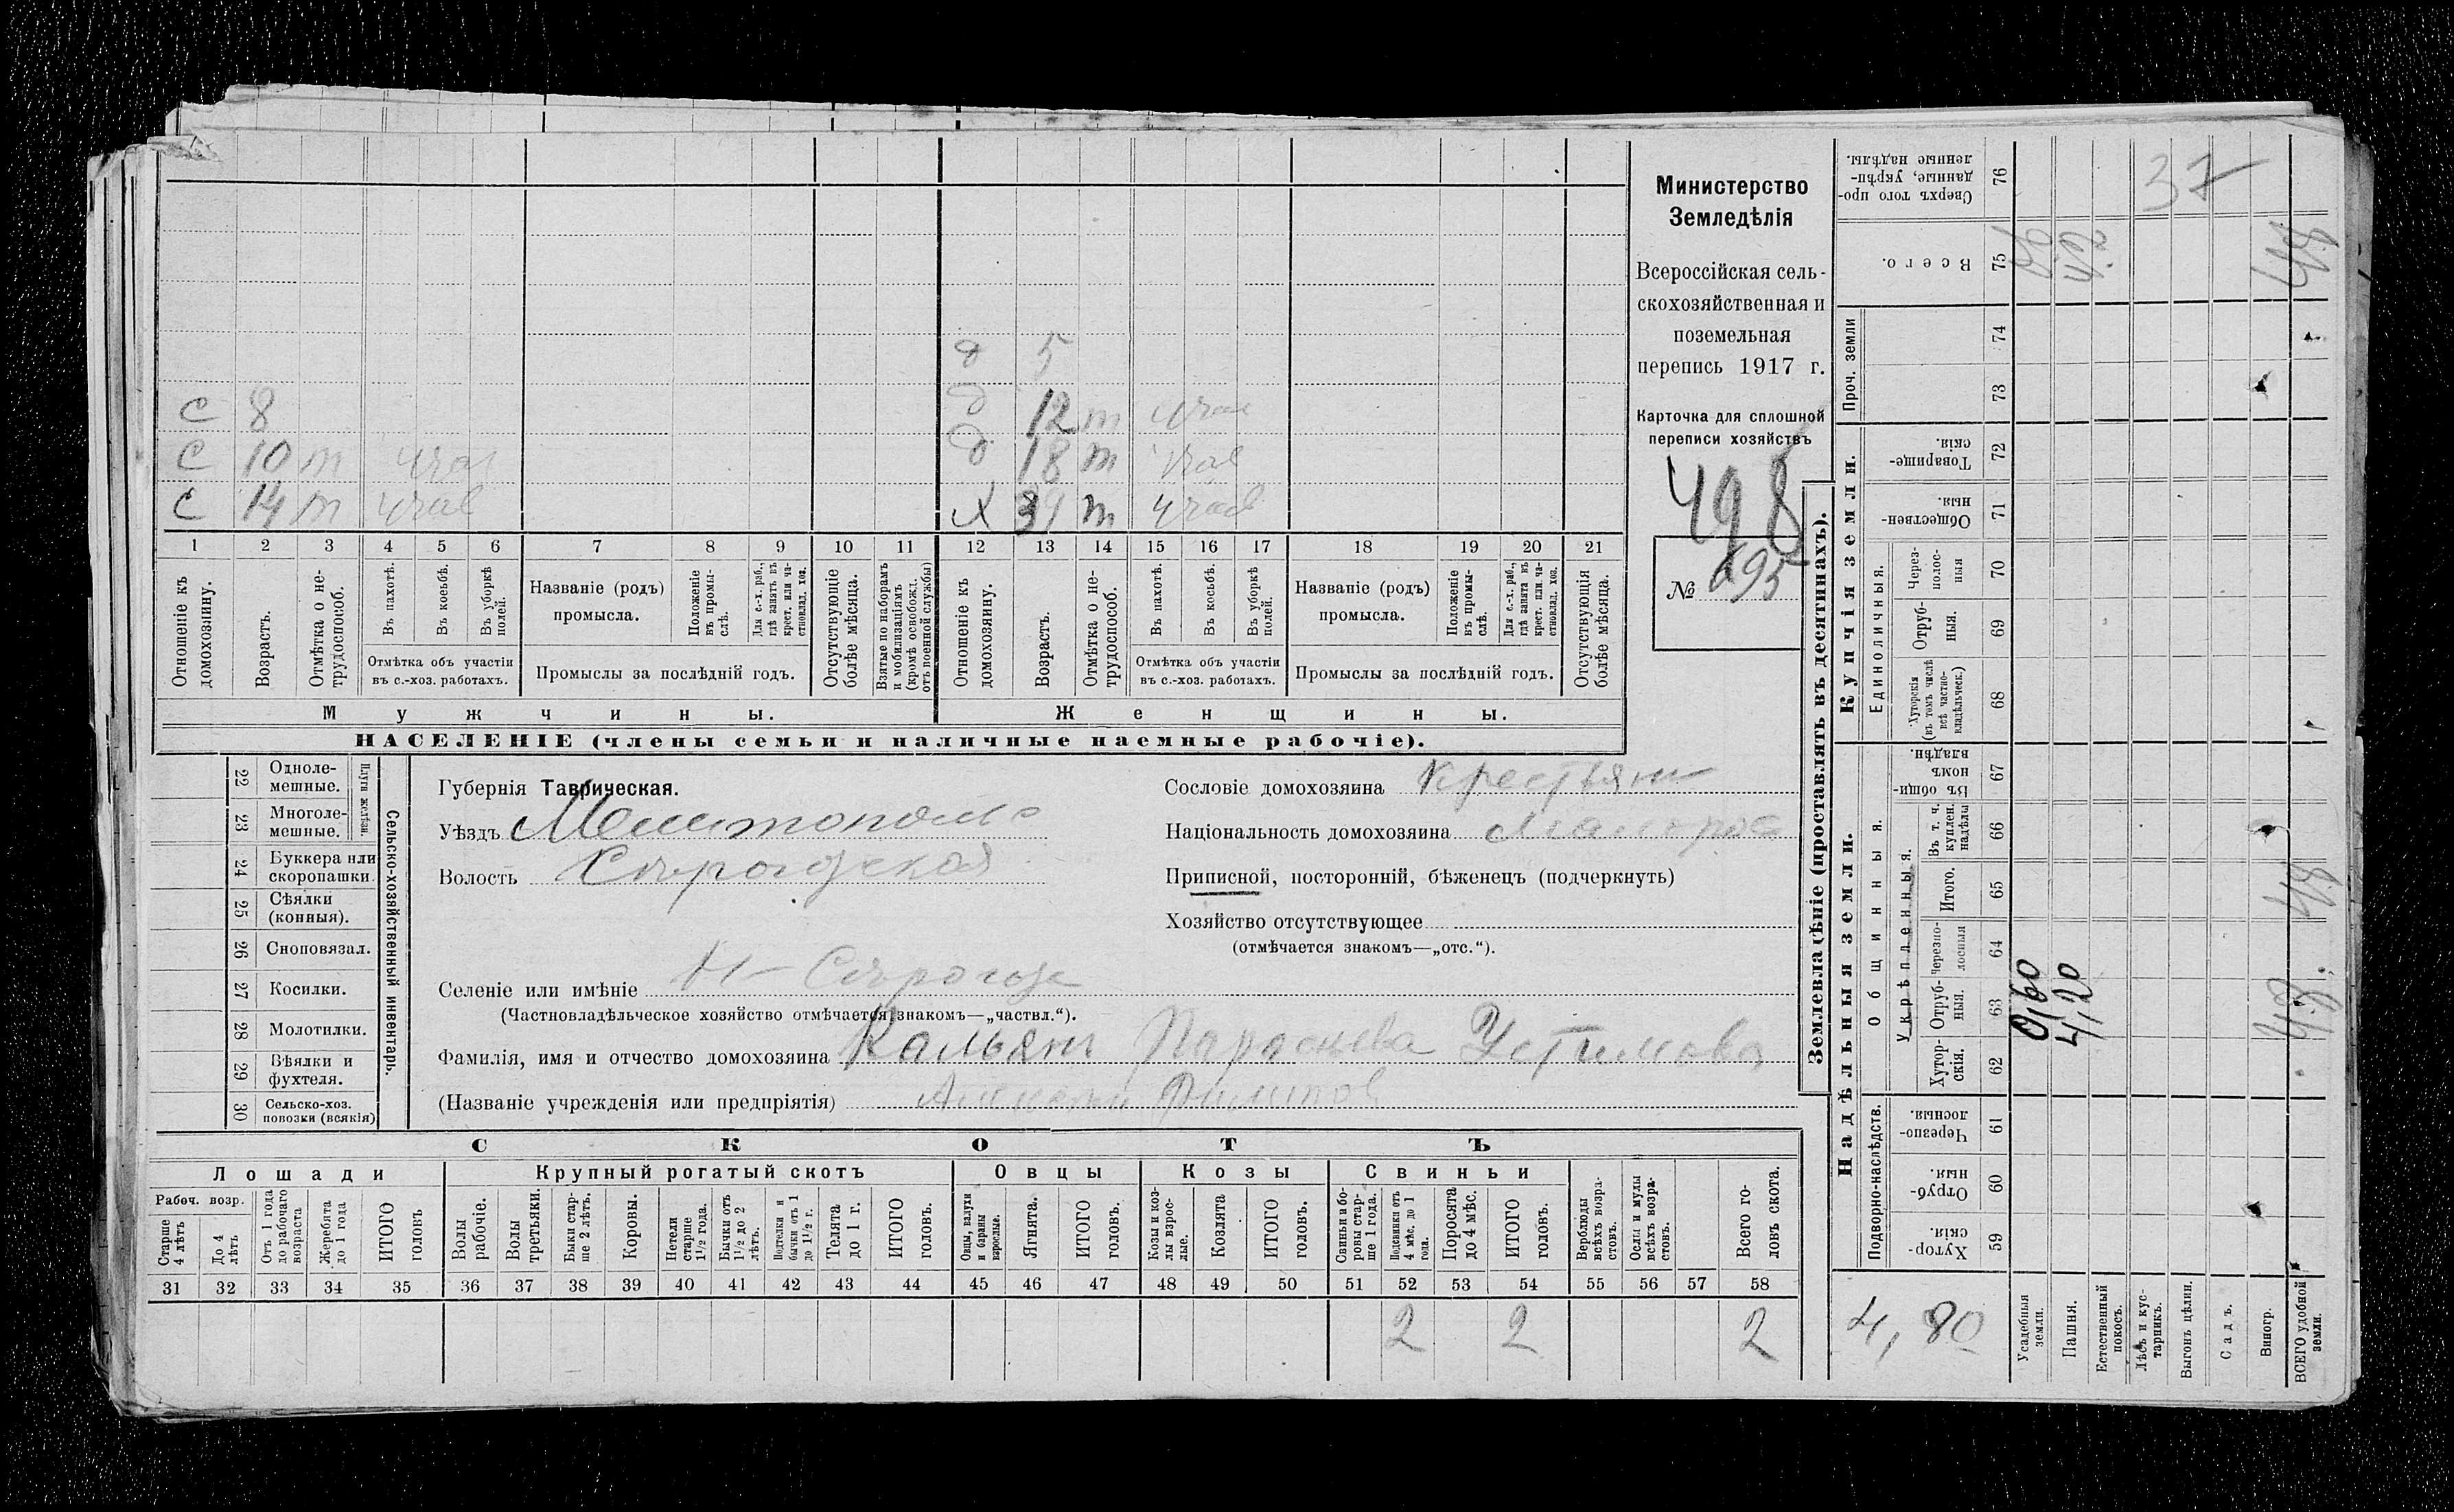 Министерство
Земледѣлія
Всероссійская сель-
скохозяйственная и
поземельная
перепись 1917 г.
Карточка для сплошной
переписи хозяйствъ
498
№ 695
д 5
С 8 д 12 т
С 10 т д 18 т
С 14 т Х т
1 2 3 4 5 6 7 8 9 10 11 12 13 14 15 16 17 18 19 20 21
Отношеніе къ домохозяину.
Возрастъ.
Отмѣтка о не-трудоспособ.
Въ пахотѣ.
Въ косьбѣ.
Въ уборкѣ полей.
Отмѣтка объ участіи
въ с.-хоз. работахъ.
Названіе (родъ)
промысла.
Положеніе въ промы-слѣ.
Для с.-х. раб., гдѣ занятъ въ крест. или ча-стновлад. хоз.
Промыслы за послѣдній годъ.
Отсутствующіе болѣе мѣсяца.
Взятые по наборамъ и мобилизаціямъ (кромѣ освобожд. отъ военной службы)
Отношеніе къ домохозяину.
Возрастъ.
Отмѣтка о не-трудоспособ.
Въ пахотѣ.
Въ косьбѣ.
Въ уборкѣ полей.
Отмѣтка объ участіи
въ с.-хоз. работахъ.
Названіе (родъ)
промысла.
Положеніе въ промы-слѣ.
Для с.-х. раб., гдѣ занята въ крест. или ча-стновлад. хоз.
Промыслы за послѣдній годъ.
Отсутствующія болѣе мѣсяца.
Мужчины. Женщины.
НАСЕЛЕНІЕ (члены семьи и наличные наемные рабочіе).
Сельско-хозяйственный инвентарь.
Плуги желѣзн.
22 Одноле-мешные.
23 Многоле-мешные.
24 Буккера или скоропашки.
25 Сѣялки (конныя).
26 Сноповязал.
27 Косилки.
28 Молотилки.
29 Вѣялки и фухтеля.
30 Сельско-хоз. повозки (всякія)
Губернія Таврическая.
Уѣздъ Мелитополь
Волость
Селеніе или имѣніе Н-
(Частновладѣльческое хозяйство отмѣчается знакомъ—„частвл.“).
Фамилія, имя и отчество домохозяина Кальян Параскева Устимова
(Названіе учрежденія или предпріятія)
Сословіе домохозяина Крестьян
Національность домохозяина малорос
Приписной, посторонній, бѣженецъ (подчеркнуть)
Хозяйство отсутствующее
(отмѣчается знакомъ—„отс.“).
СКОТЪ
Лошади Крупный рогатый скотъ Овцы Козы Свиньи
Рабоч. возр.
Старше 4 лѣтъ
До 4 лѣтъ
Отъ 1 года до рабочаго возраста
Жеребята до 1 года
ИТОГО головъ
Волы рабочіе.
Волы третьяки.
Быки стар-ше 2 лѣтъ.
Коровы.
Нетели старше 1½ года.
Бычки отъ 1½ до 2 лѣтъ.
Подтелки и бычки отъ 1 до 1½ г.
Телята до 1 г.
ИТОГО головъ.
Овцы, валухи и бараны взрослые.
Ягнята.
ИТОГО головъ.
Козы и коз-лы взрос-лые.
Козлята
ИТОГО головъ.
Свиньи и бо-ровы стар-ше 1 года.
Подсвинки отъ 4 мѣс. до 1 года.
Поросята до 4 мѣс.
ИТОГО головъ.
Верблюды всѣхъ возра-стовъ.
Ослы и мулы всѣхъ возра-стовъ.
Всего го-ловъ скота.
31 32 33 34 35 36 37 38 39 40 41 42 43 44 45 46 47 48 49 50 51 52 53 54 55 56 57 58
2 2 2
Землевладѣніе (проставлять въ десятинахъ).
Надѣльныя земли. Купчія земли. Проч. земли
Подворно-наслѣдств.
Общинныя.
Укрѣпленныя.
Единоличныя.
59 Хутор-скія.
60 Отруб-ныя.
61 Черезпо-лосныя.
62 Хутор-скія.
63 Отруб-ныя.
64 Черезпо-лосныя
65 Итого.
66 Въ т. ч. куплен. надѣлы
67 Въ общи-номъ владѣн.
68 Хуторскія (въ томъ числѣ всѣ частно-владѣльческ.)
69 Отруб-ныя.
70 Через-полос-ныя
71 Обществен-ныя.
72 Товарище-скія.
73
74
75 Всего.
76 Сверхъ того про-данные, укрѣп-ленные надѣлы.
37
0,60
4,20
4,80
Усадебныя земли.
Пашня.
Естественный покосъ.
Лѣсъ и кус-тарникъ.
Выгонъ цѣлин.
Садъ.
Виногр.
ВСЕГО удобной земли.